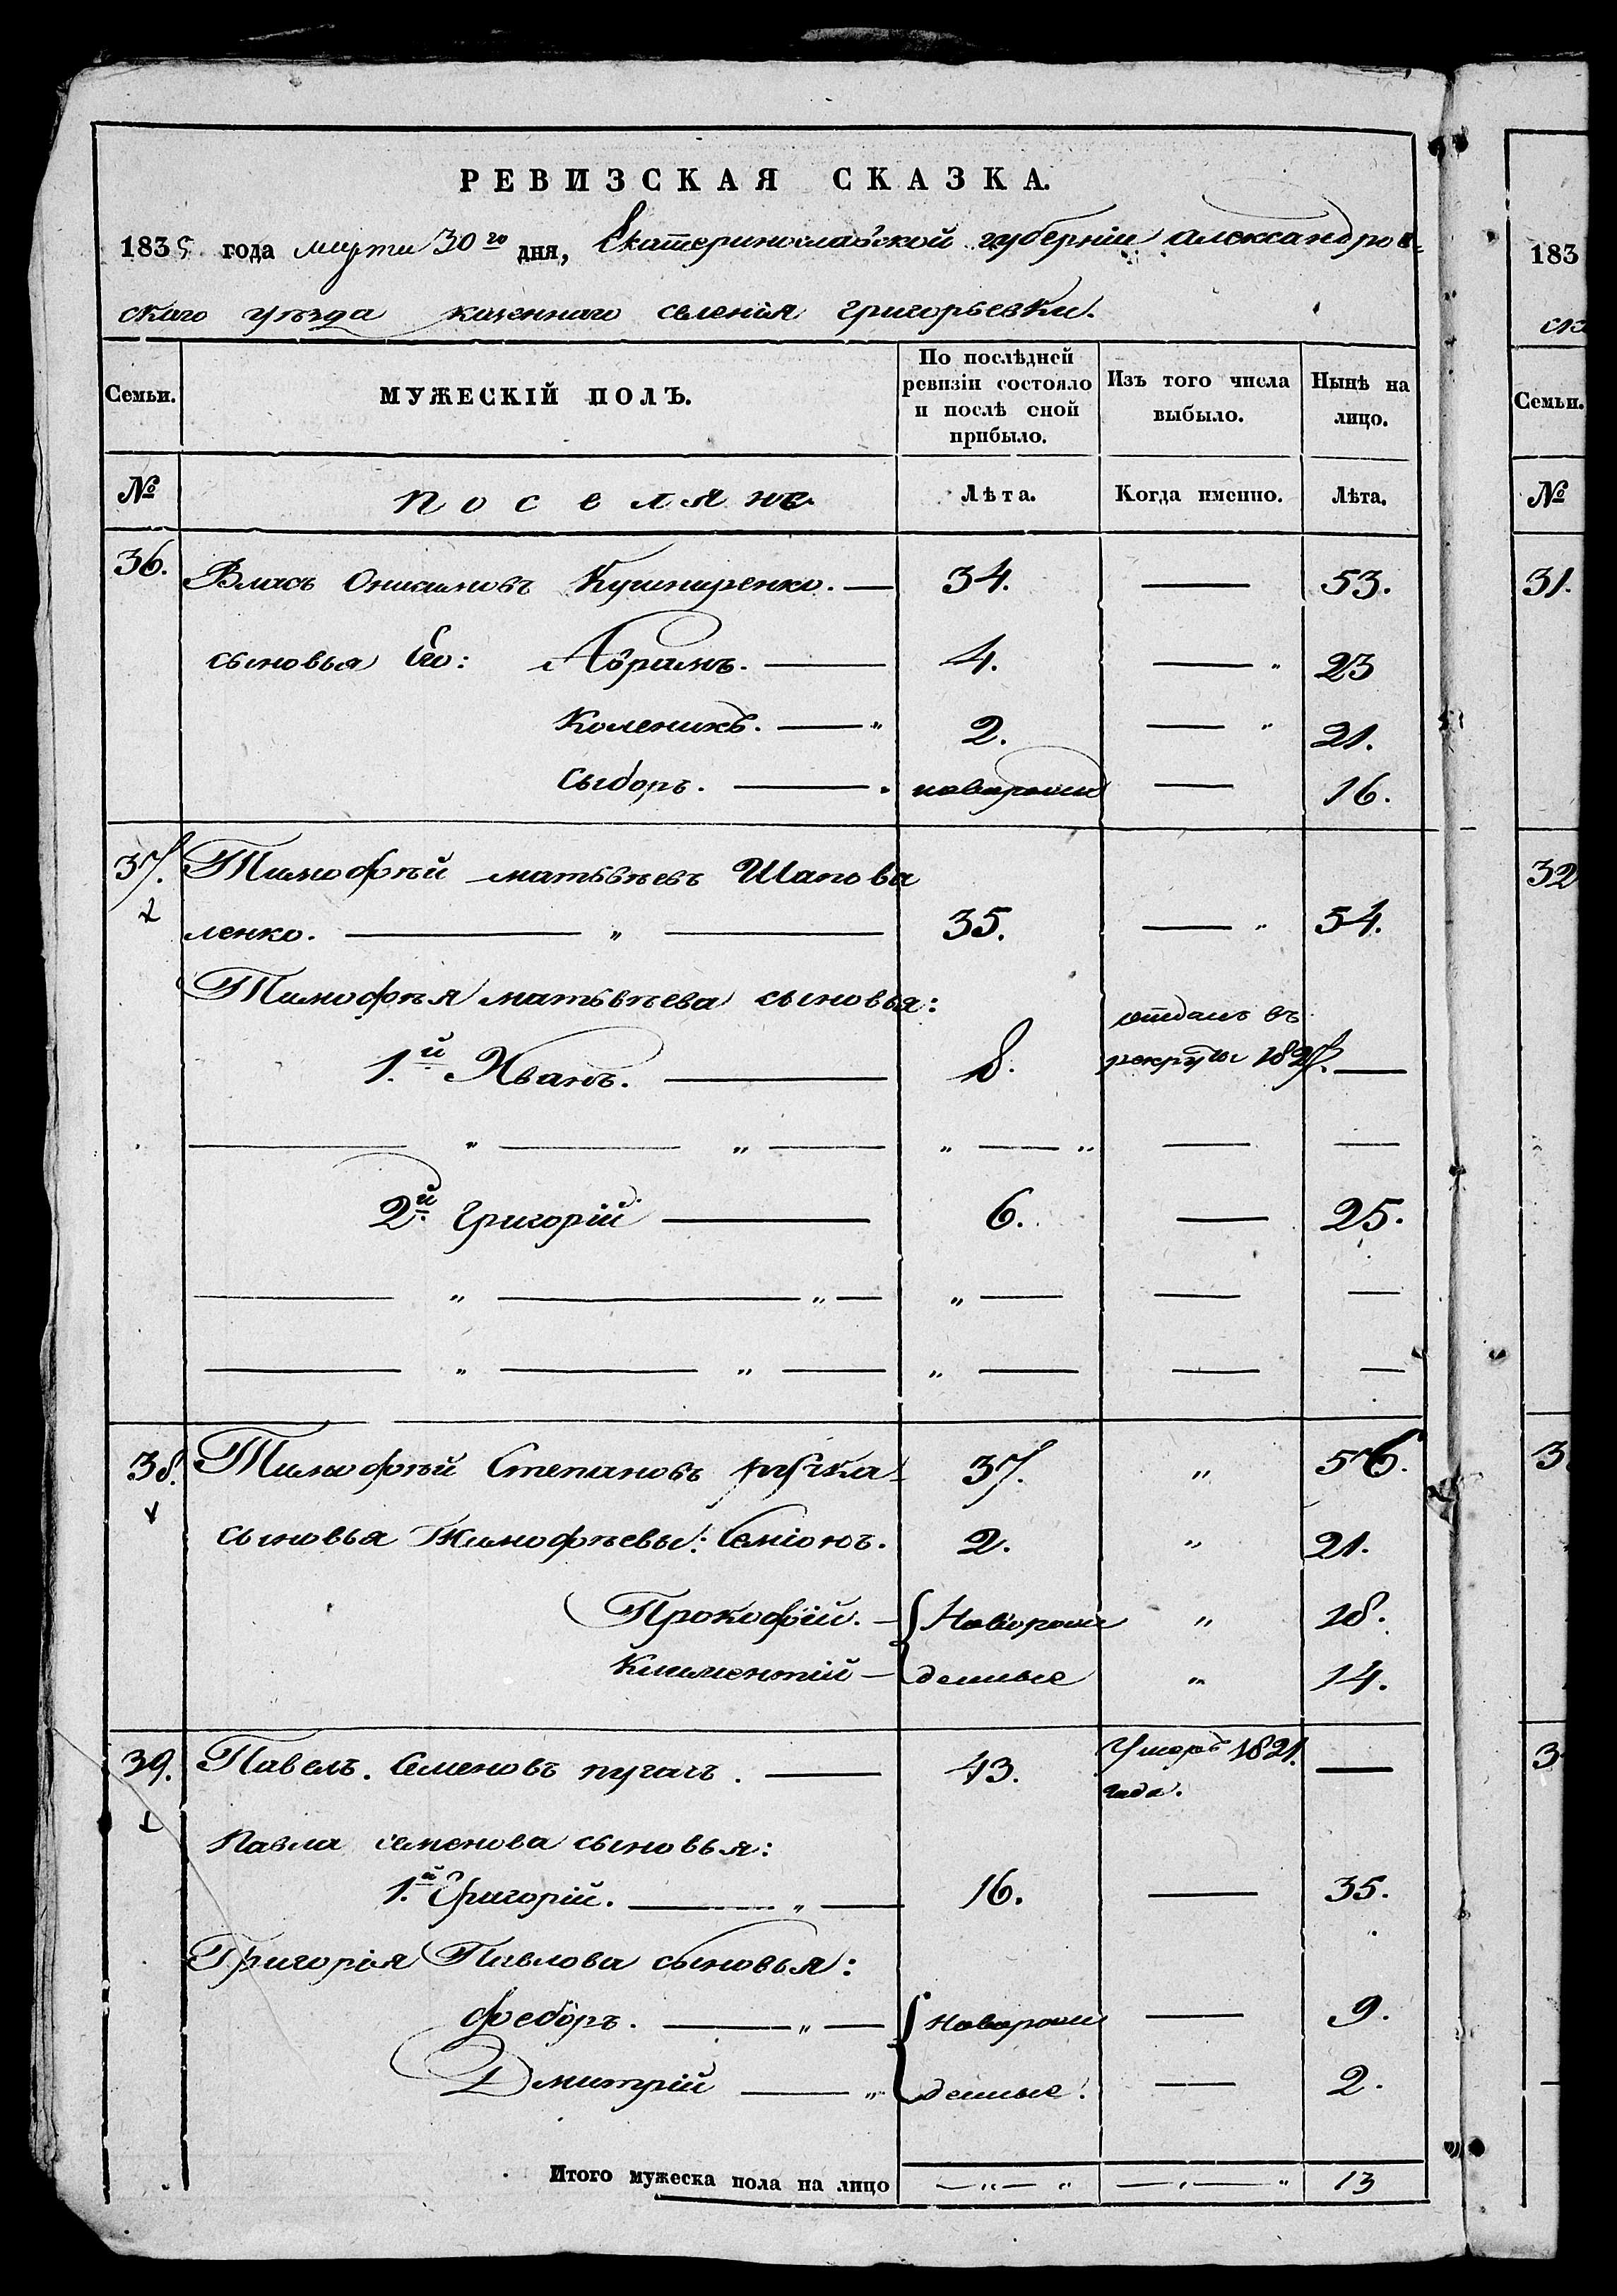 РЕВИЗСКАЯ СКАЗКА.
1835 года марта 30го дня, Екатеринославской губерніи александров-
скаго уѣзда казеннаго селенія григорьевки.
Семьи. МУЖЕСКІЙ ПОЛЪ. По послѣдней ревизіи состояло и послѣ оной прибыло. Изъ того числа выбыло. Нынѣ на лицо.
№ поселяне. Лѣта. Когда именно. Лѣта.
36. Власъ Онисимовъ Кушниренко. — 34. — 53.
сыновья Его: Абрамъ. — 4. — „ 23
Коленикъ. — „ 2. — „ 21.
Сыдоръ. — „ новорожд — 16.
37. Тимофѣй матвѣевъ Шапова
ленко. — „ — 35. — „ 54.
Тимофѣя матвѣева сыновья:
1.й Иванъ. — 8. отданъ въ рекруты 1827. —
— „ — „ — „ — „ — —
2.й григорій — 6. — 25.
— „ — „ — „ — — —
— „ — „ — „ — — —
38. Тимофѣй Степановъ 37. „ 56.
сыновья Тимофѣевы: Семіонъ. 2. „ 21.
Прокофій. — { Новорож „ 18.
Климентій — { денные „ 14.
39. Павелъ. Семеновъ пугачъ. — 43. Умеръ 1821. года. —
Павла семенова сыновья:
1.й Григорій. — „ — 16. — 35.
Григорія Павлова сыновья:
федоръ. — „ — { Новорож — 9.
Дмитрій — „ { денные. — 2.
Итого мужеска пола на лицо — „ — „ — „ — „ 13
183
ск
Семьи.
№
31.
32
3
3